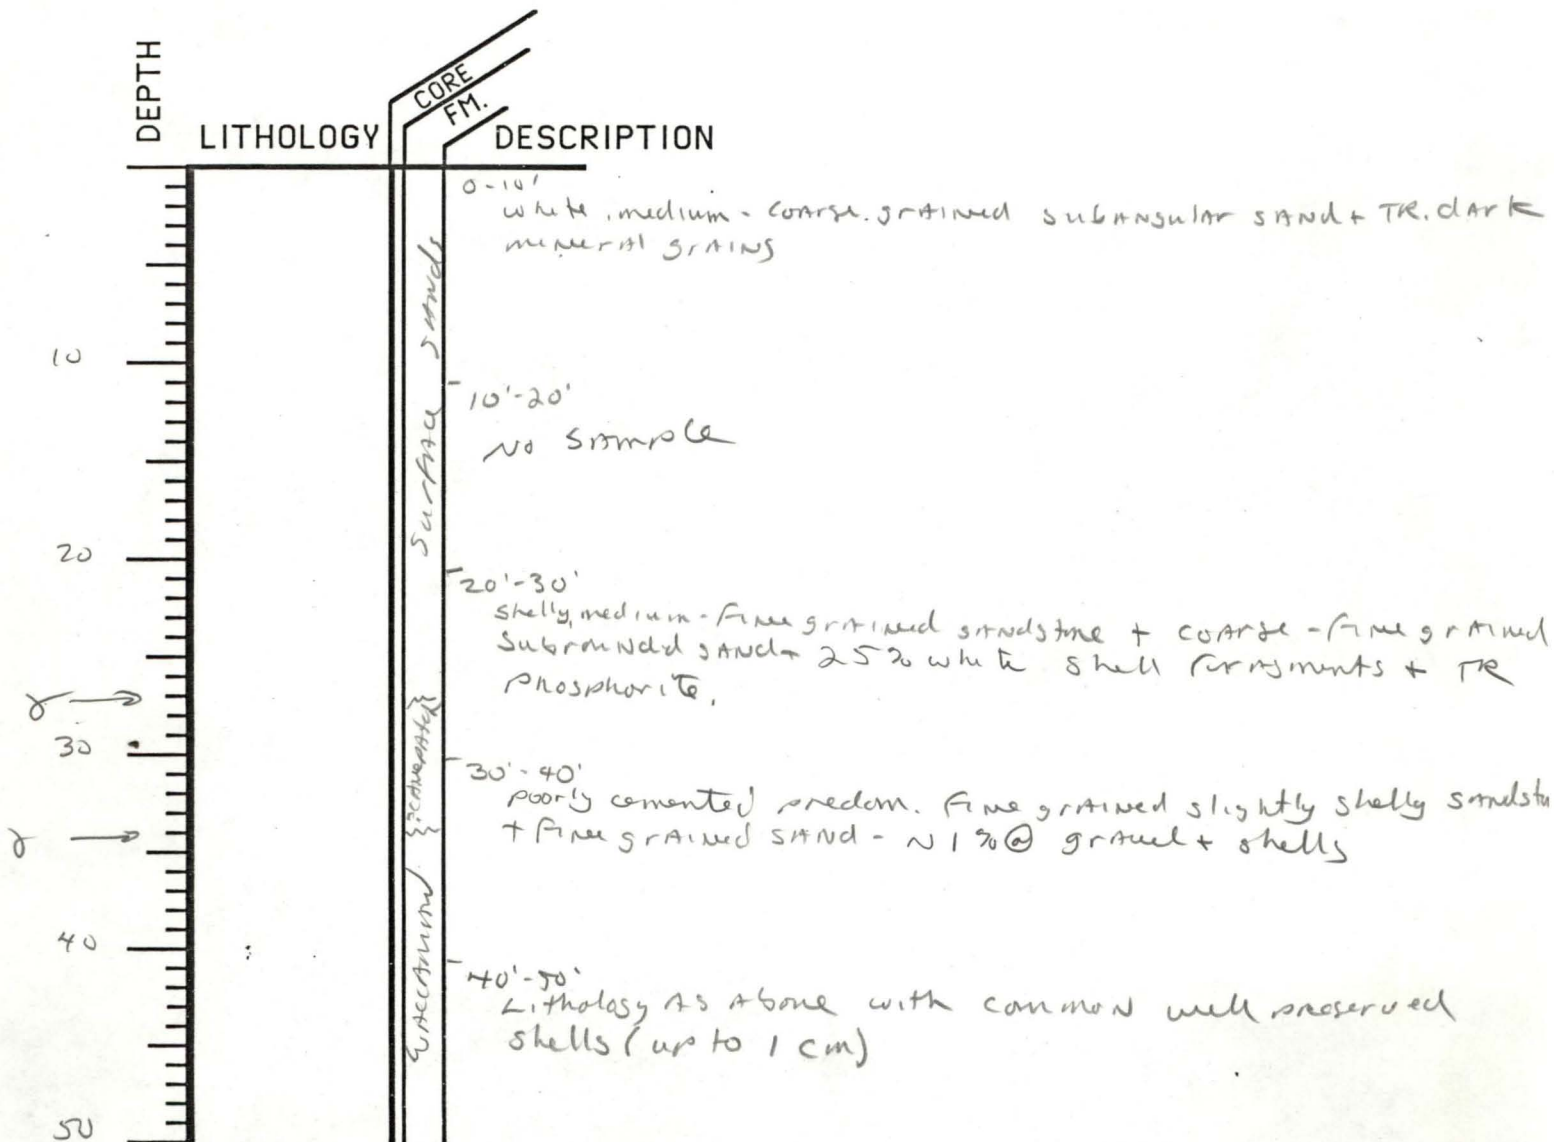 DEPTH
LITHOLOGY
CORE
FM.
DESCRIPTION
0-10'
white, medium - coarse. grained subangular sand + TR. dark
mineral grains
Surface sands
10
10'-20'
No sample
20
20'-30'
Shelly, medium - fine grained sandstone + coarse - fine grained
Subrounded sand + 25% white shell fragments + TR
phosphorite.
γ
30
30'-40'
poorly cemented predom. fine grained slightly shelly sandsto
+ fine grained sand - ~1% @ gravel + shells
γ
Waccamaw
40
40'-50'
Lithology as above with common well preserved
shells (up to 1 cm)
50